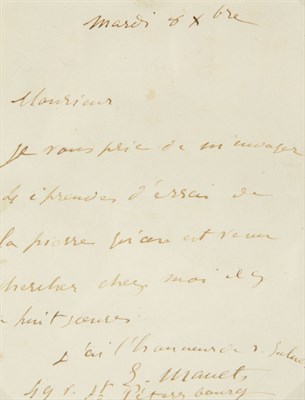 Mardi 8 Xbre
Monsieur
je vous prie de m'envoyer
les épreuves d'essai de
la pierre qu'on est venu
chercher chez moi il y
a huit jours
J'ai l'honneur de v. saluer
E. Manet
49 r. St Pétersbourg